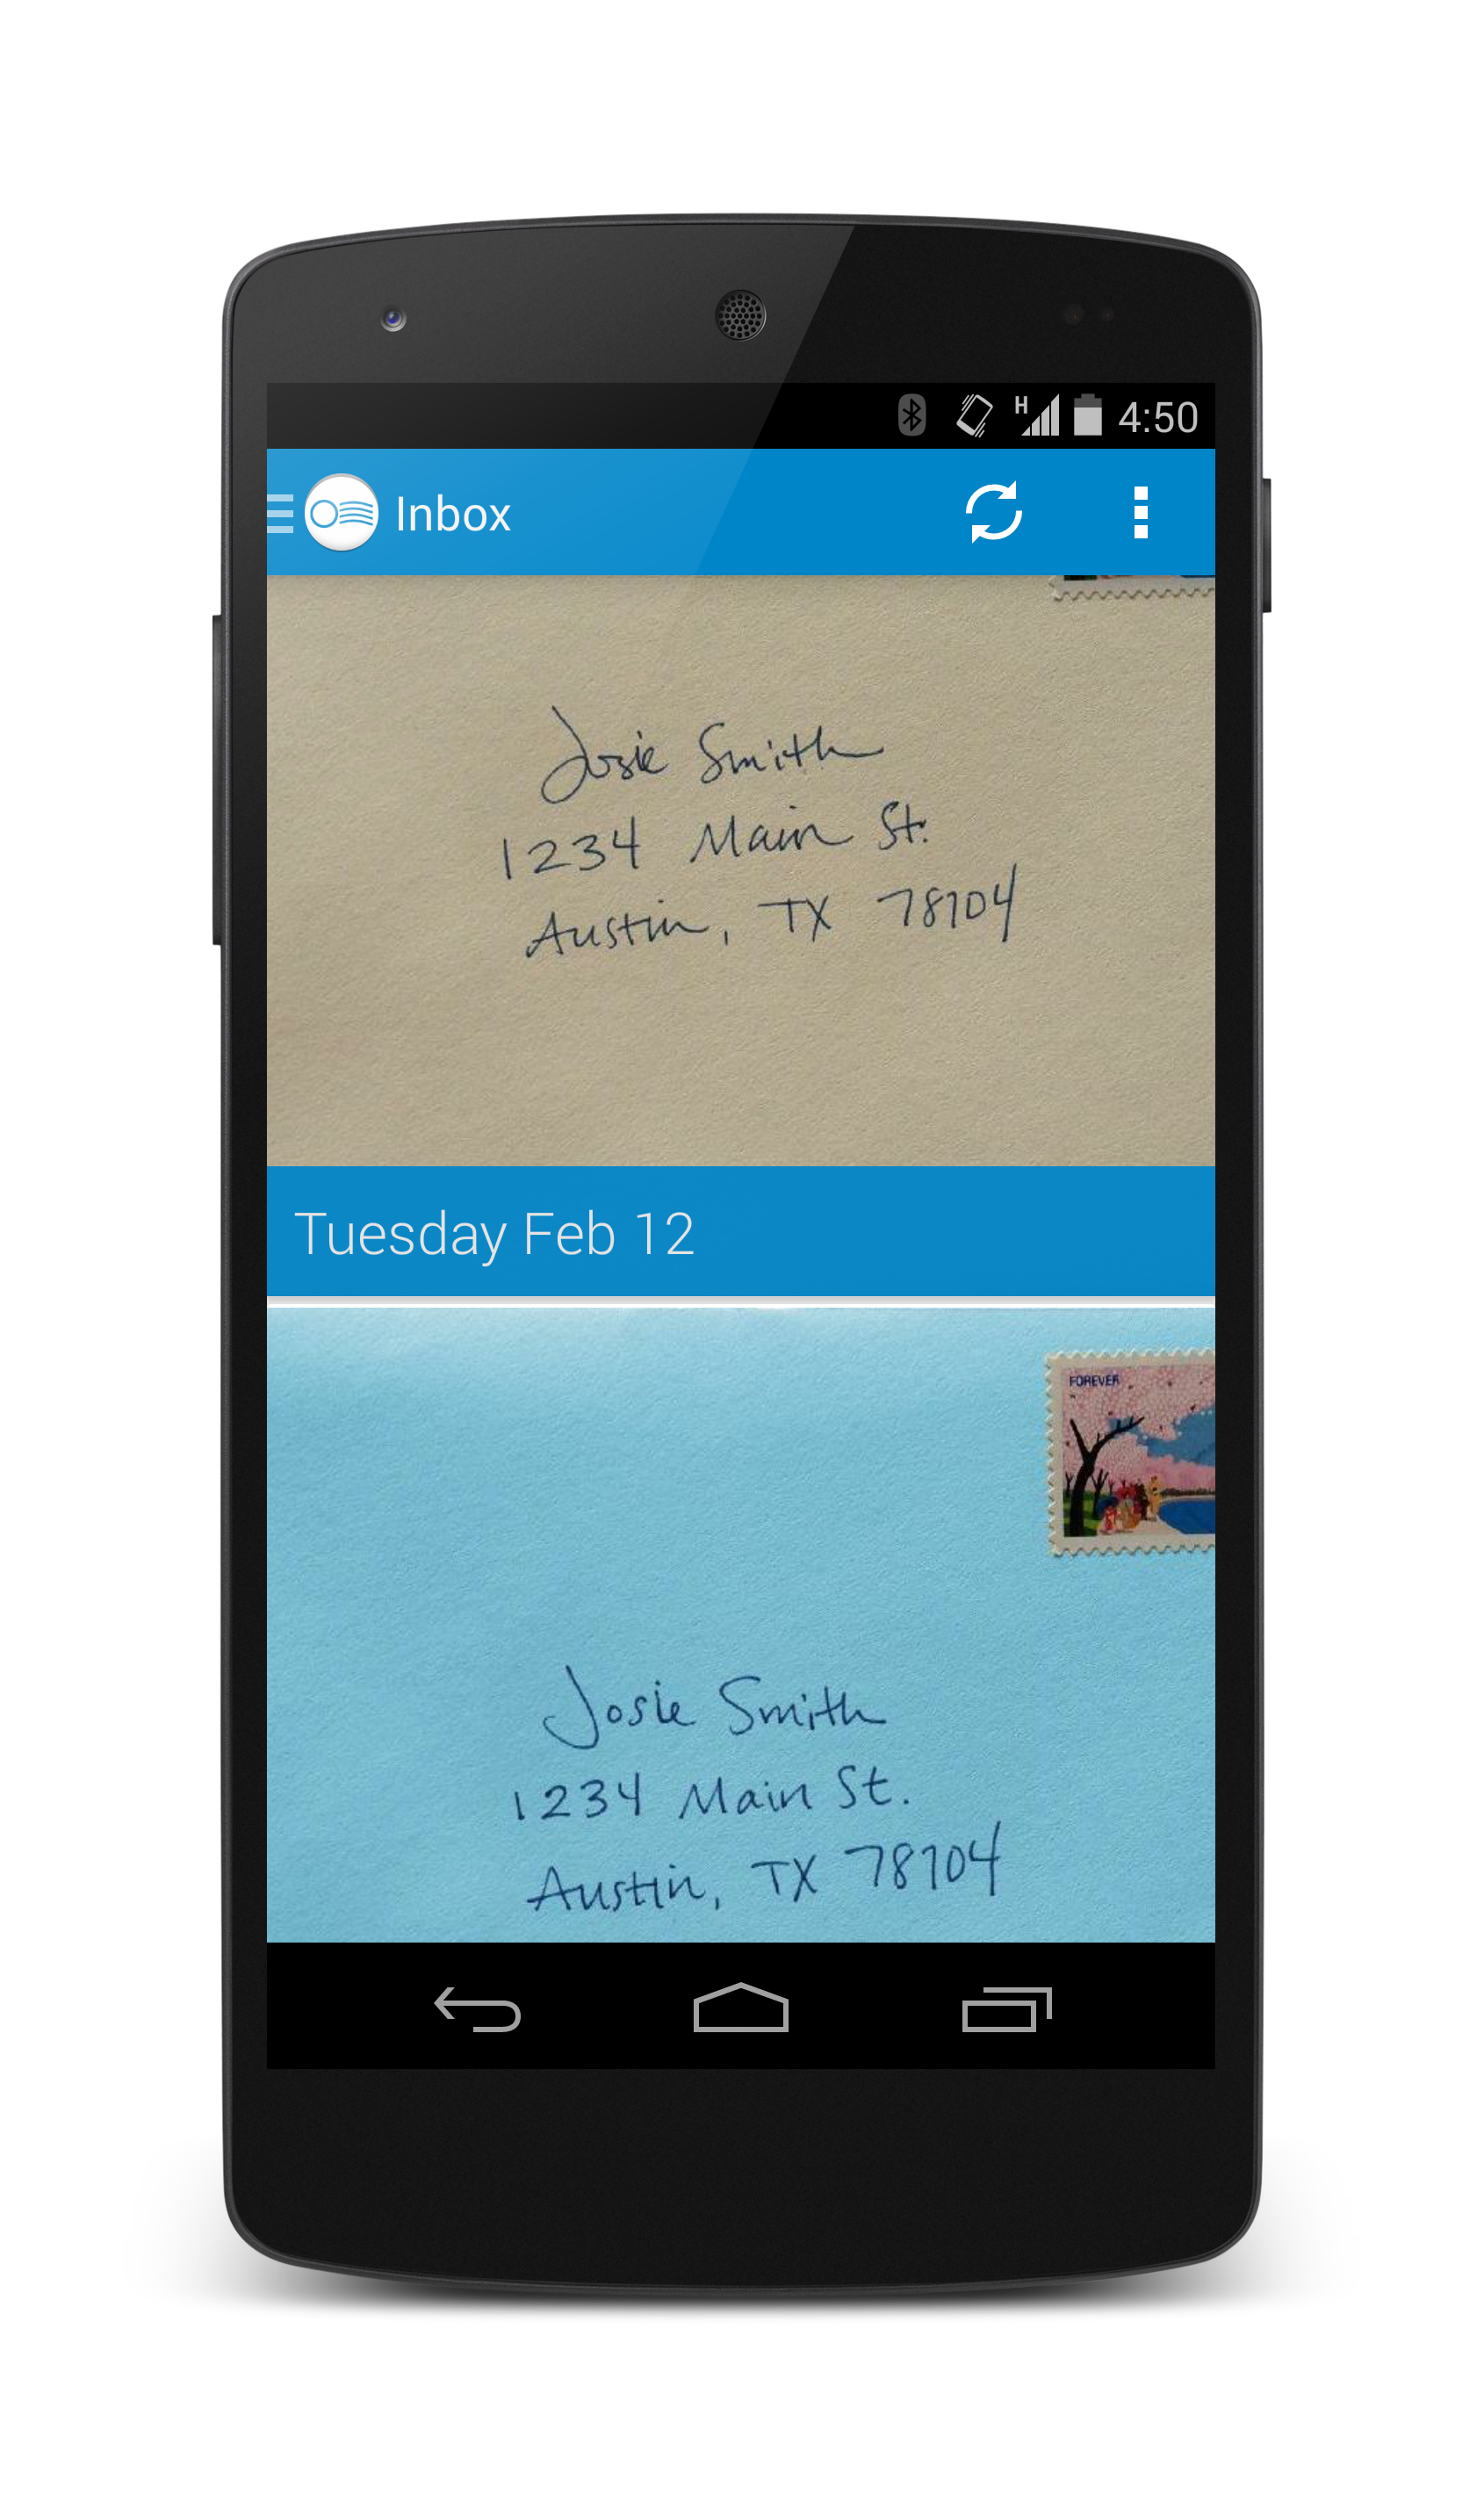 H 4:50
Inbox
Josie Smith
1234 Main St.
Austin, TX 78704
Tuesday Feb 12
FOREVER
Josie Smith
1234 Main St.
Austin, TX 78704